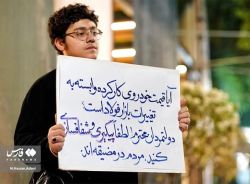 آیا قیمت خودروی کارکرده وابسته به
تغییرات بازار فولاد است؟
دولتمردان محترم لطفا پیگیری و شفافسازی
کنید. مردم در مضیقه‌اند.
فارس